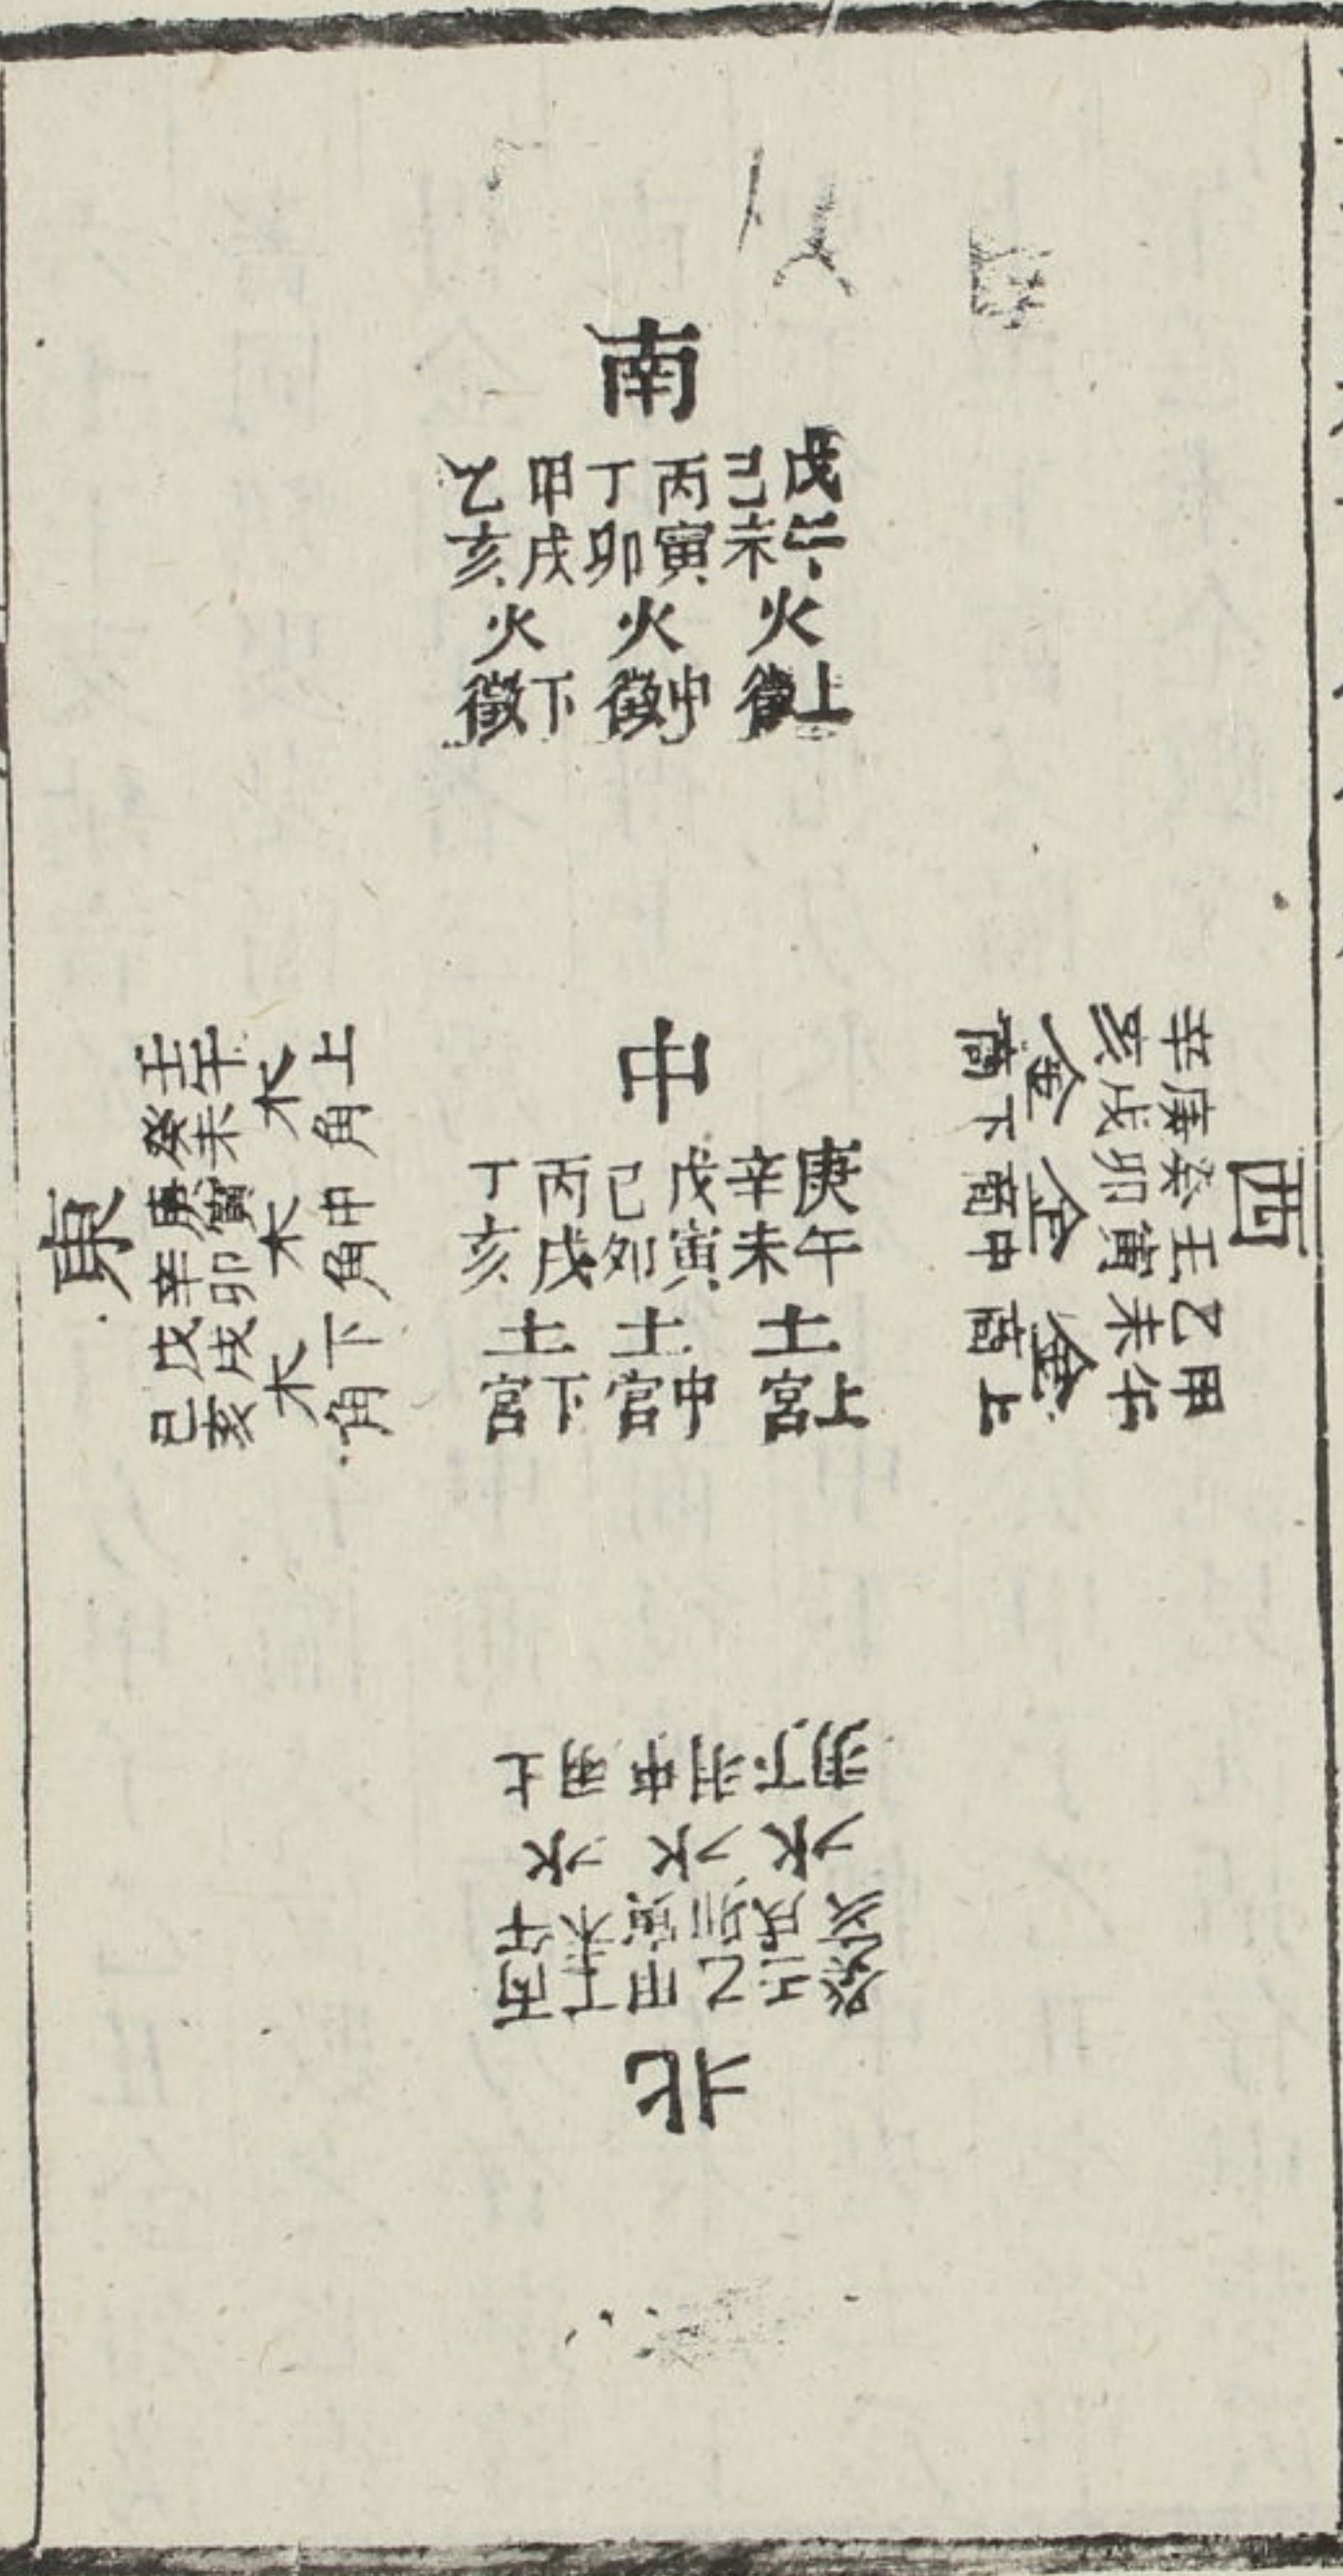 南
戊午己未火上徵
丙寅丁卯火中徵
甲戌乙亥火下徵
西
甲午乙未金上商
壬寅癸卯金中商
庚戌辛亥金下商
中
庚午辛未土上宮
戊寅己卯土中宮
丙戌丁亥土下宮
東
壬午癸未木上角
庚寅辛卯木中角
戊戌己亥木下角
北
丙午丁未水上羽
甲寅乙卯水中羽
壬戌癸亥水下羽